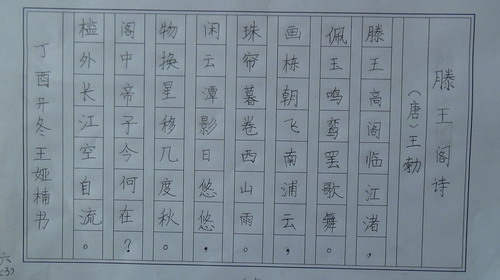 滕王阁诗
(唐)王勃
滕王高阁临江渚,
佩玉鸣鸾罢歌舞。
画栋朝飞南浦云,
珠帘暮卷西山雨。
闲云潭影日悠悠,
物换星移几度秋。
阁中帝子今何在?
槛外长江空自流。
丁酉开冬王娅楠书
六
(3)